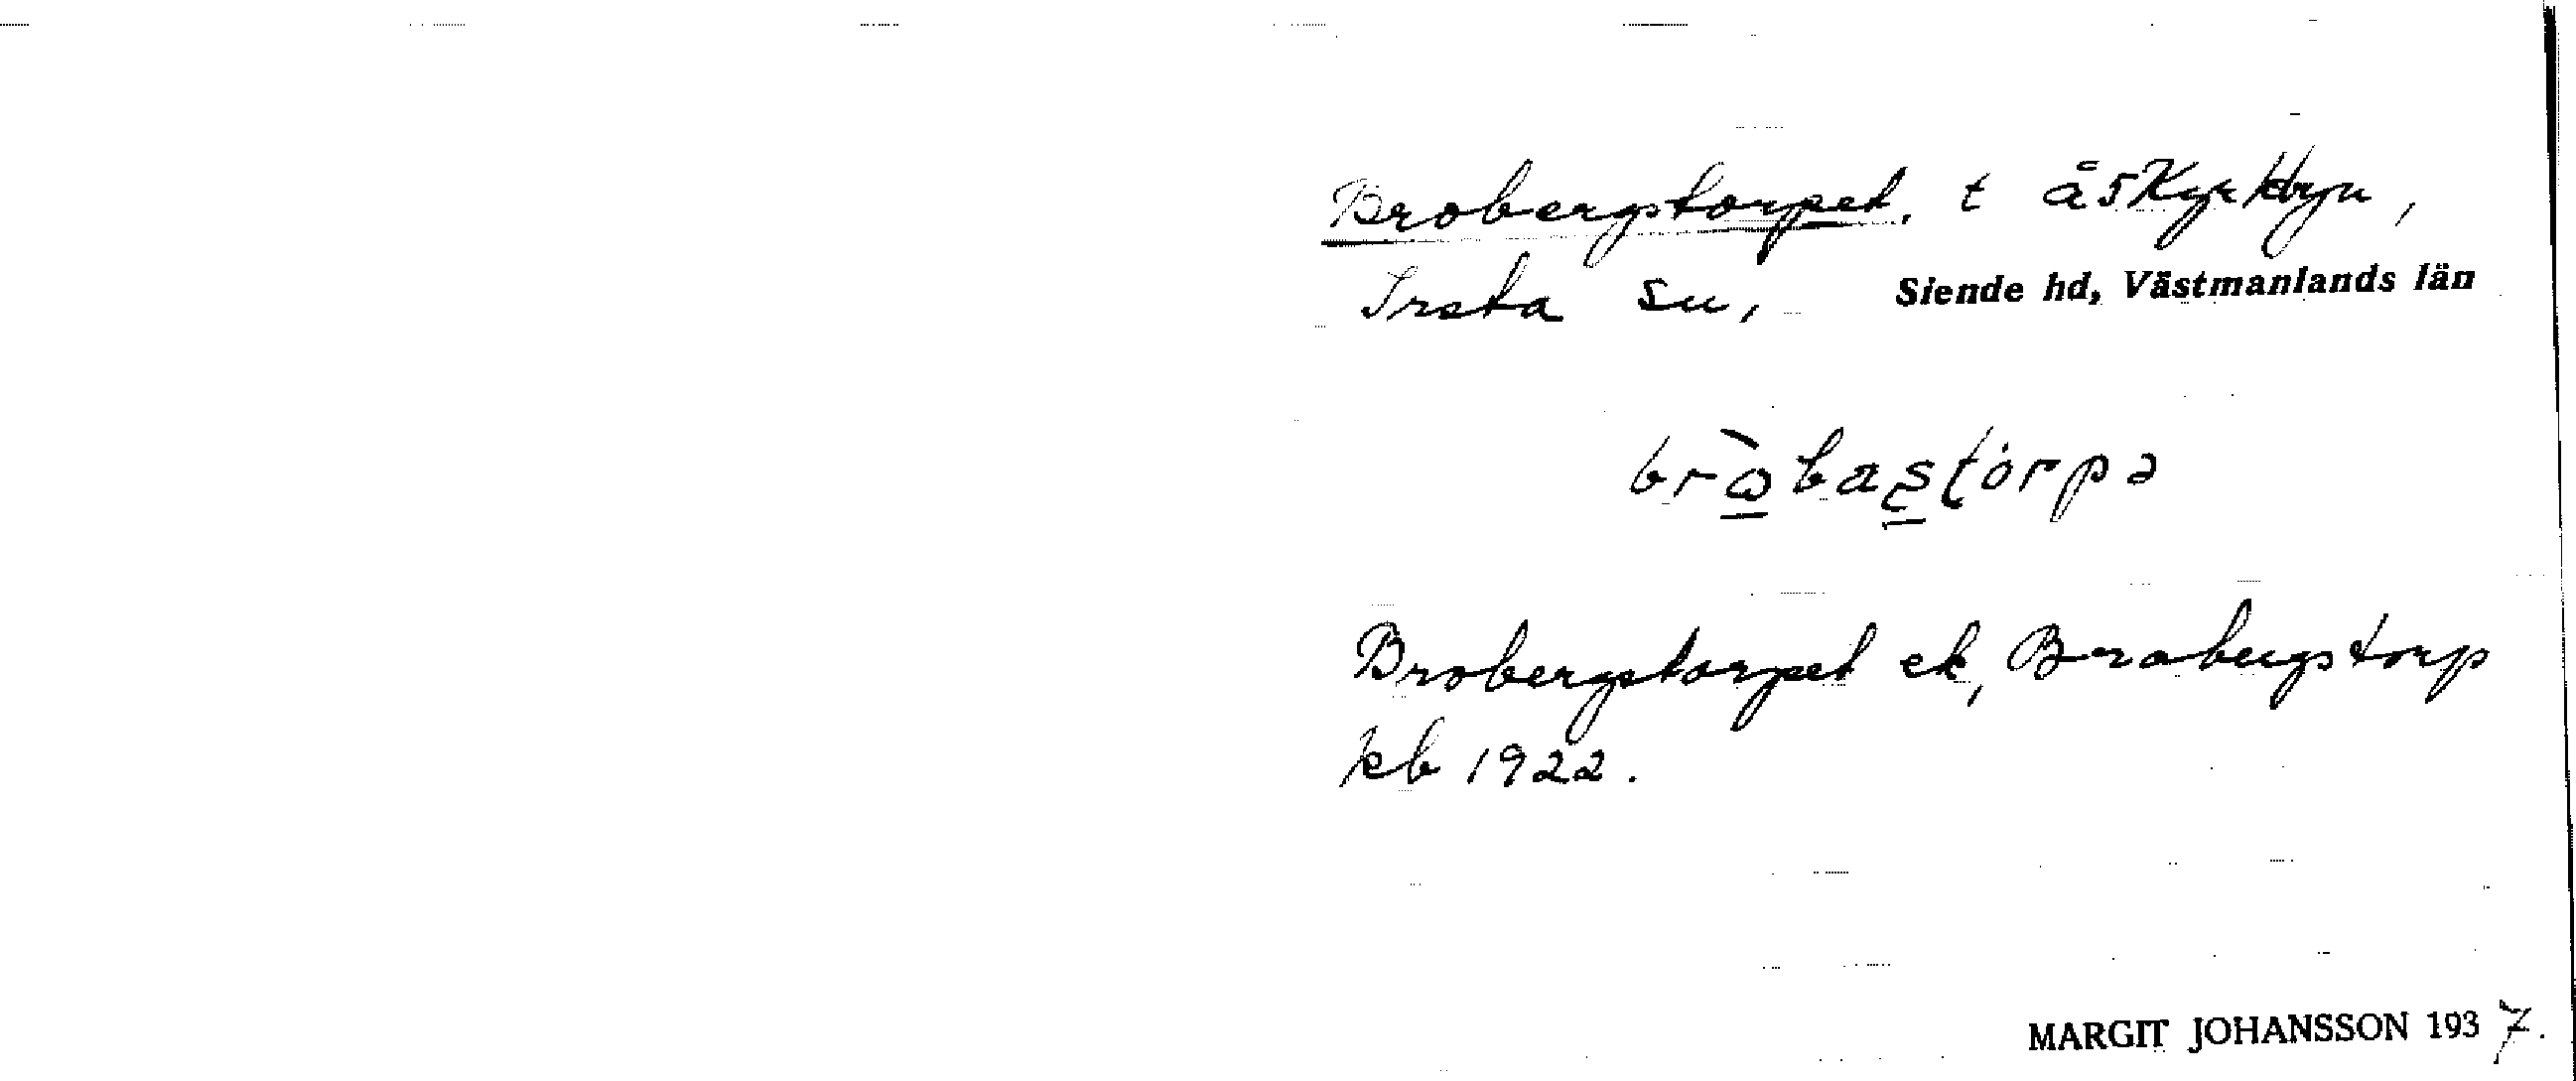 Brobergstorpet, t å 5 Kyrkbyn,
Irsta sn, Siende hd, Västmanlands län
brò̱bas̱tórpə
Brobergstorpet ek, Brobergstorp
kb 1922.
MARGIT JOHANSSON 1937.